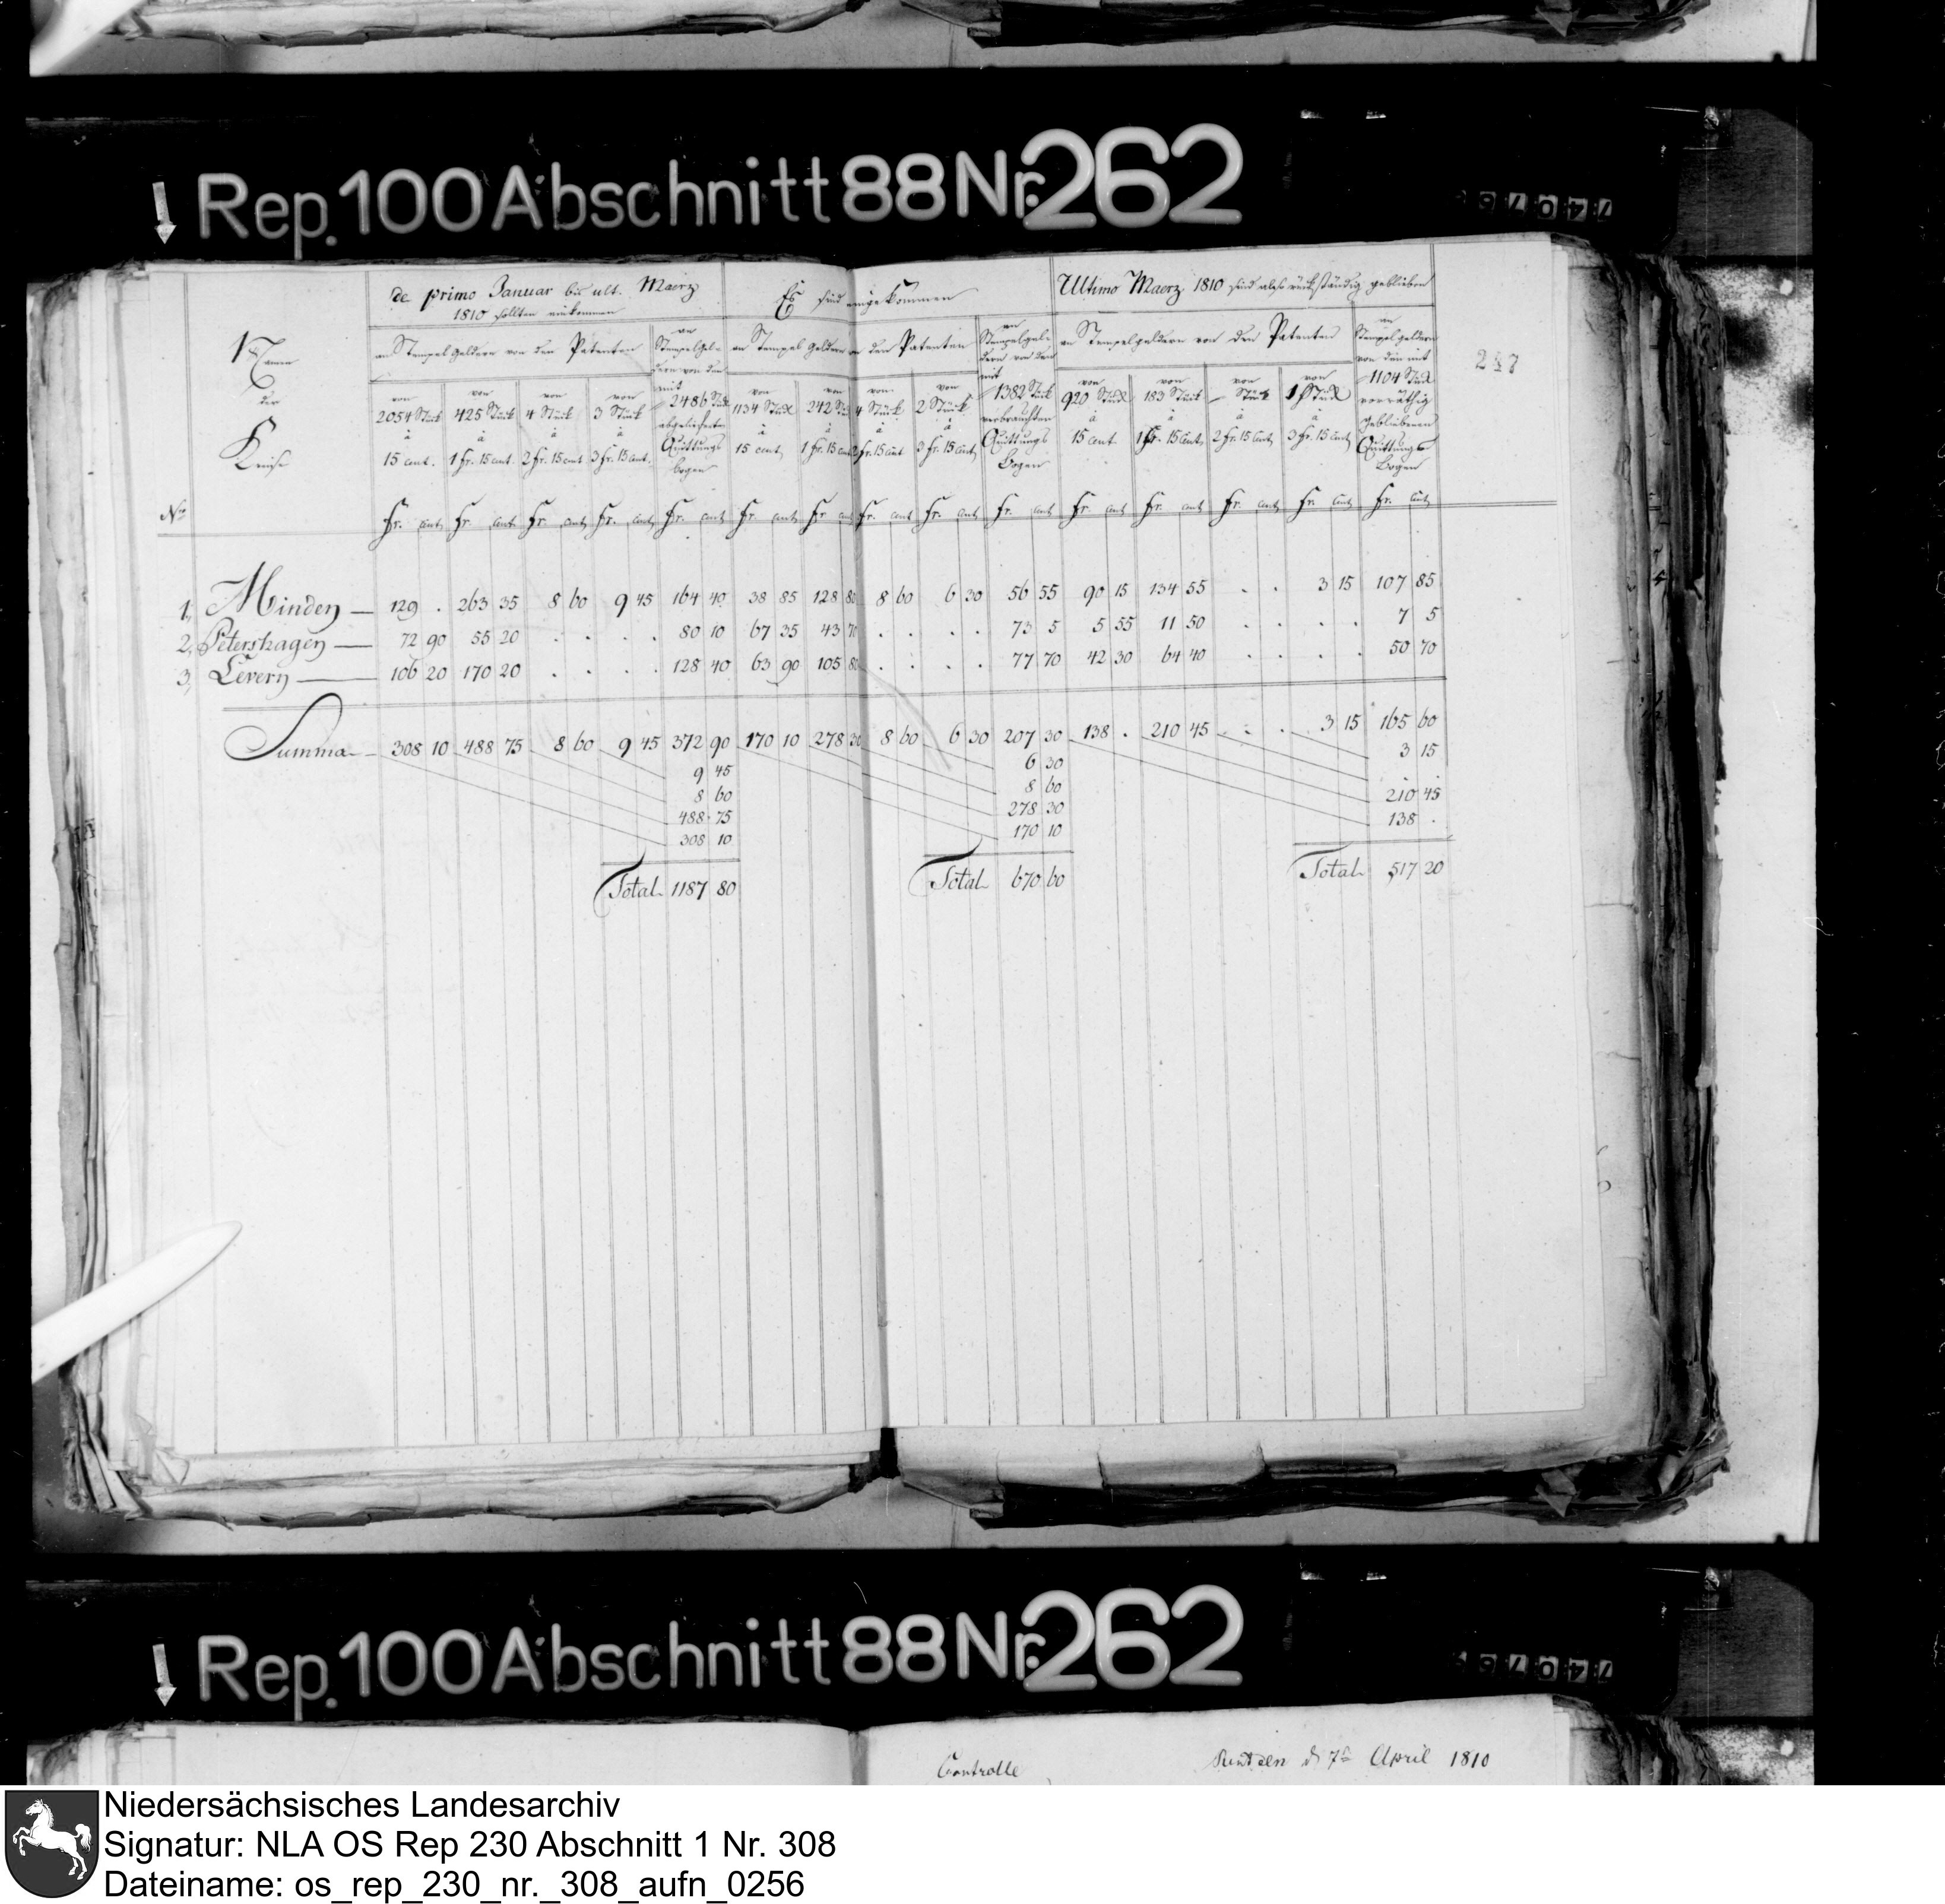 Rep. 100 Abschnitt 88 Nr. 262
de primo Januar bis ult. Maerz
1810 sollten einkommen
Es sind eingekommen
Ultimo Maerz 1810 sind also rückständig geblieben
257
Namen
der
Kreise
an Stempelgeldern von den Patenten
an Stempelgeldern von den mit 2486 Stück abgelieferten Quittungs bogen
an Stempel Geldern von den Patenten
an Stempelgeldern von den mit 1382 Stück verbrauchten Quittungs Bogen
an Stempelgeldern von den Patenten
an Stempelgeldern von den mit 1104 Stück vorräthig gebliebenen Quittungs Bogen
von 2054 Stück à 15 cent.
von 425 Stück à 1 fr. 15 cent
von 4 Stück à 2 fr. 15 cent
von 3 Stück à 3 fr. 15 cent.
von 1134 Stück à 15 cent
von 242 Stück à 1 fr. 15 cent
von 4 Stück à 2 fr. 15 cent
von 2 Stück à 3 fr. 15 cent
von 920 Stück à 15 cent
von 183 Stück à 1 fr. 15 cent
von — Stück à 2 fr. 15 cent
von 1 Stück à 3 fr. 15 cent
No fr. cent fr. cent fr. cent fr. cent fr. cent fr. cent fr. cent fr. cent fr. cent fr. cent fr. cent fr. cent fr. cent fr. cent fr. cent
1, Minden — 129 . 263 35 8 60 9 45 164 40 38 85 128 80 8 60 6 30 56 55 90 15 134 55 . . 3 15 107 85
2, Petershagen — 72 90 55 20 . . . . 80 10 67 35 43 70 . . . . 73 5 5 55 11 50 . . . . 7 5
3, Levern — 106 20 170 20 . . . . 128 40 63 90 105 80 . . . . 77 70 42 30 64 40 . . . . 50 70
Summa 308 10 488 75 8 60 9 45 372 90 170 10 278 30 8 60 6 30 207 30 138 . 210 45 . . 3 15 165 60
9 45 6 30 3 15
8 60 8 60 . .
488 75 278 30 210 45
308 10 170 10 138 .
Total 1187 80 Total 670 60 Total 517 20
Rep. 100 Abschnitt 88 Nr. 262
Controlle
April 1810
Niedersächsisches Landesarchiv
Signatur: NLA OS Rep 230 Abschnitt 1 Nr. 308
Dateiname: os_rep_230_nr._308_aufn_0256